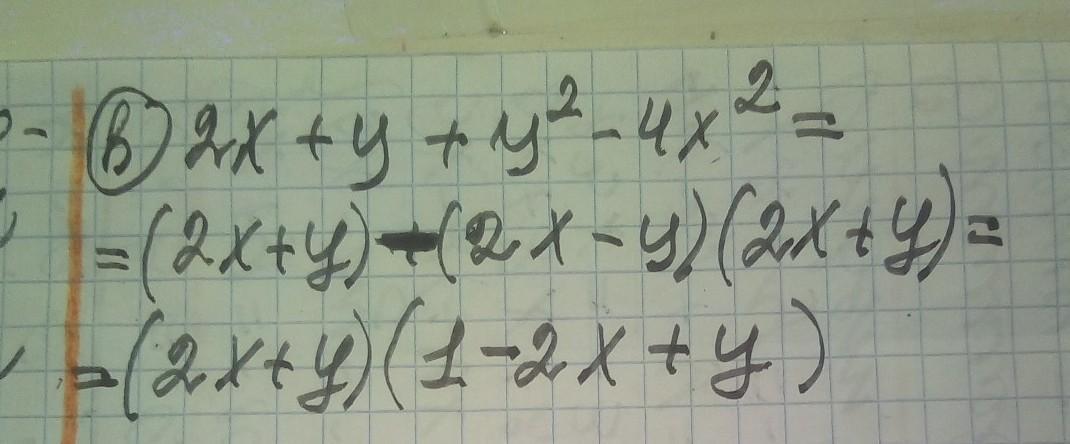 в) 2x + y + y² - 4x² =
= (2x + y) - (2x - y)(2x + y) =
= (2x + y)(1 - 2x + y)